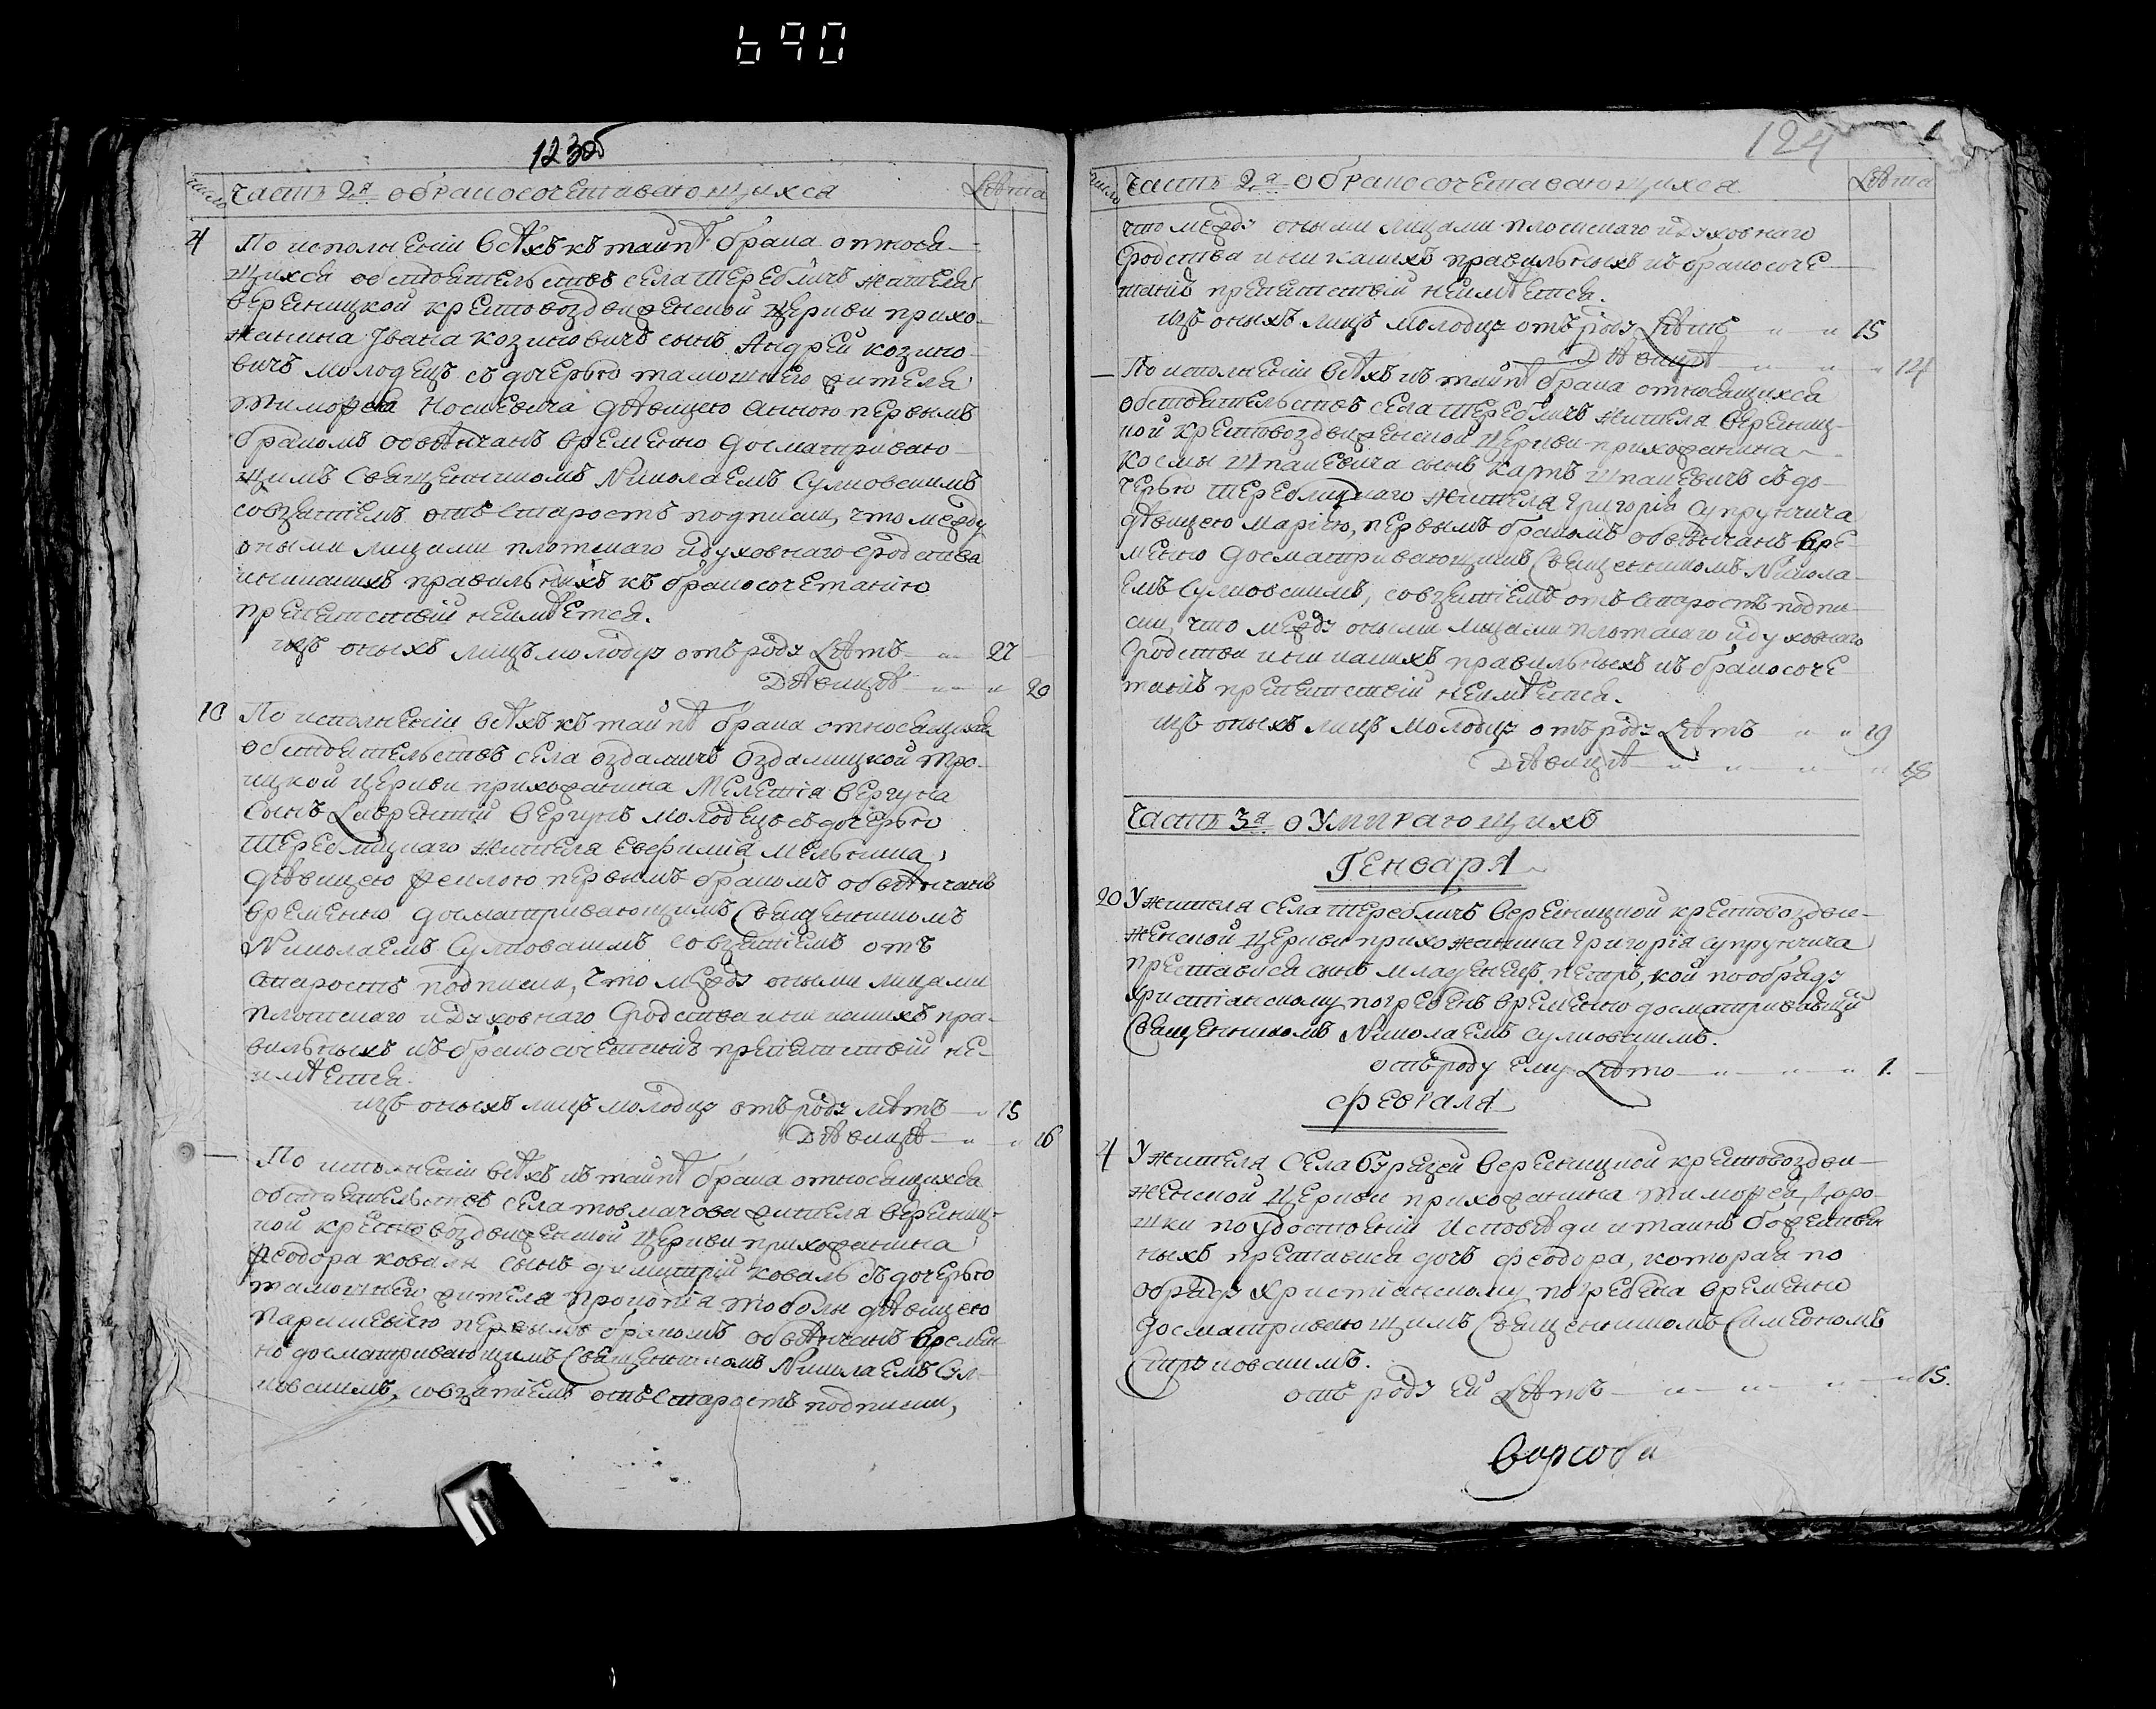 690
123об
число Часть 2я о бракосочетавающихся Лѣта
4 По исполненіи всѣхъ къ тайнѣ брака относя-
щихся обстоятельствъ села Теребличъ жителя
Вересницкой крестовоздвиженской церкви прихо-
жанина Ивана Козиновича сынъ Андрей Козино-
вичъ молодецъ съ дочерью тамошнего жителя
Тимофея Носкевича дѣвицею Анною первымъ
бракомъ обвѣнчанъ временно досматриваю-
щимъ Священникомъ Николаемъ Сулковскимъ
совзятіемъ отъ Старостъ подписи, что между
оными лицами плотскаго и духовнаго сродства
и никакихъ правильныхъ къ бракосочетанію
препятствій неимѣется.
изъ оныхъ лицъ молодцу отъ роду Лѣтъ 27
Дѣвицѣ 20
10 По исполненіи всѣхъ къ тайнѣ брака относящихся
обстоятельствъ села Оздамичъ Оздамицкой Тро-
ицкой церкви прихожанина Мелетія Вергуна
сынъ Лаврентій Вергунъ молодецъ съ дочерью
Тереблицкаго жителя Евфимія Мельника,
дѣвицею Феклою первымъ бракомъ обвѣнчанъ
временно досматривающимъ Священникомъ
Николаемъ Сулковскимъ совзятіемъ отъ
старостъ подписи, что между оными лицами
плотскаго и духовнаго Сродства и никакихъ пра-
вильныхъ къ бракосочетанію препятствій не-
имѣется.
изъ оныхъ лицъ молодцу отъ роду лѣтъ 15
Дѣвицѣ 16
По исполненіи всѣхъ къ тайнѣ брака относящихся
обстоятельствъ села Товмачова жителя Вересниц-
кой крестовоздвиженской церкви прихожанина
Феодора Коваля сынъ Димитрій Коваль съ дочерью
тамошнего жителя Прокопія Тоболы дѣвицею
Параскевіею первымъ бракомъ обвѣнчанъ времян-
но досматривающимъ Священникомъ Николаемъ Сул-
ковскимъ, совзятіемъ отъ Старостъ подписи,
124
число Часть 2я о бракосочетавающихся Лѣта
что между оными лицами плотскаго и духовнаго
Сродства и никакихъ правильныхъ къ бракосоче-
танію препятствій неимѣется.
изъ оныхъ лицъ молодцу отъ роду Лѣтъ 15
Дѣвицѣ 14
По исполненіи всѣхъ къ тайнѣ брака относящихся
обстоятельствъ села Теребличъ жителя Вересниц-
кой крестовоздвиженской церкви прихожанина
Космы Шпакевича сынъ Карпъ Шпакевичъ съ до-
черью Тереблицкаго жителя Григорія Супрунчича
дѣвицею Маріею, первымъ бракомъ обвѣнчанъ вре-
менно досматривающимъ Священникомъ Никола-
емъ Сулковскимъ, совзятіемъ отъ Старостъ подпи-
си, что между оными лицами плотскаго и духовнаго
Сродства и никакихъ правильныхъ къ бракосоче-
танію препятствій неимѣется.
изъ оныхъ лицъ молодцу отъ роду Лѣтъ 19
Дѣвицѣ 18
Часть 3я о умирающихъ
Генваря
20 У жителя села Теребличъ Вересницкой крестовоздви-
женской церкви прихожанина Григорія Супрунчича
преставися сынъ младенецъ Петръ, кой по обряду
христіанскому погребенъ временно досматривающимъ
Священникомъ Николаемъ Сулковскимъ.
отъ роду ему Лѣто 1.
Февраля
4 У жителя Села Буражей Вересницкой крестовоздви-
женской церкви прихожанина Тимофея Доро-
шки по удостоеніи Исповѣди и таинъ божествен-
ныхъ преставися дочь Феодора, которая по
обряду Христіанскому погребена временно
досматривающимъ Священникомъ Симеономъ
отъ роду ей Лѣтъ 15.